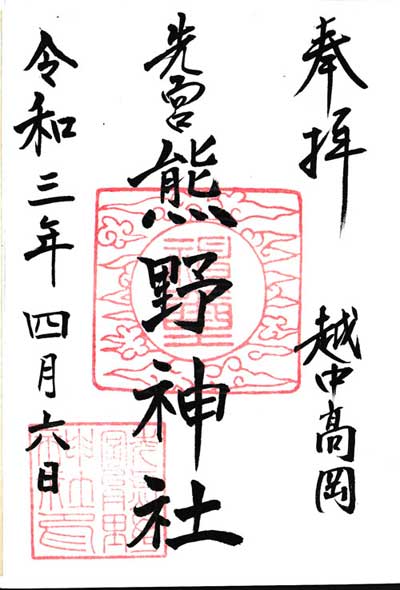 奉拝
越中高岡
先宮
熊野神社
令和三年四月六日